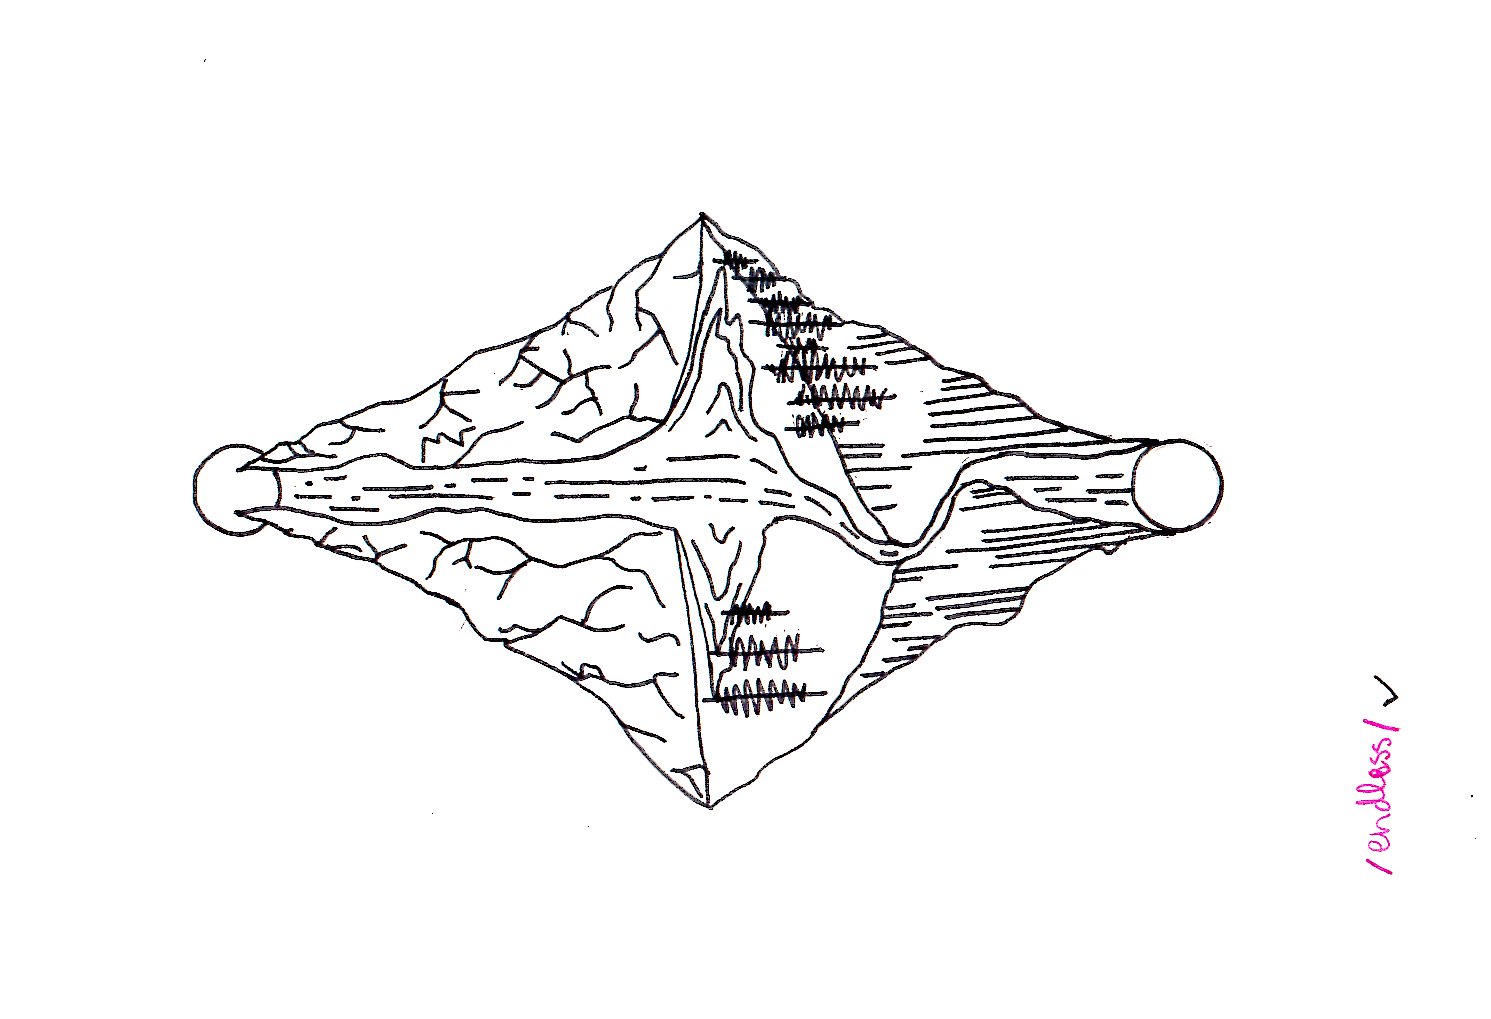 /endless/ ✓